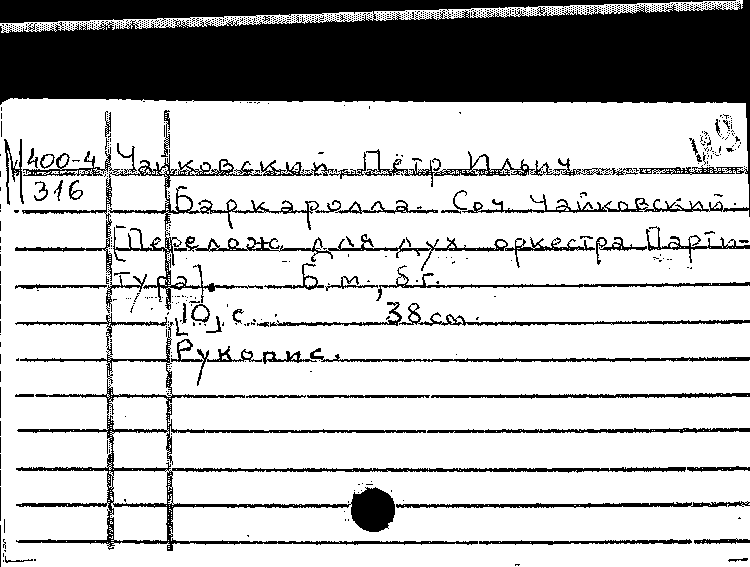 М 400-4
316
Чайковский, Пётр Ильич
Баркаролла. Соч. Чайковский.
[Перелож. для дух. оркестра. Парти-
тура]. Б.м., б.г.
[10] с. 38 см.
Рукопис.